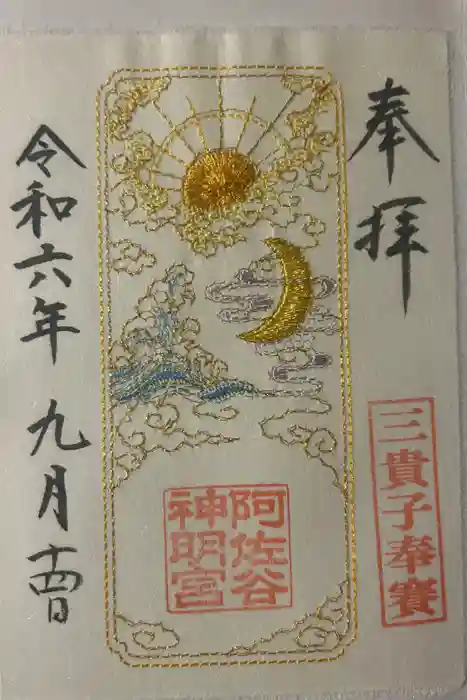 奉拝
三貴子奉賽
阿佐谷
神明宮
令和六年 九月 十四日